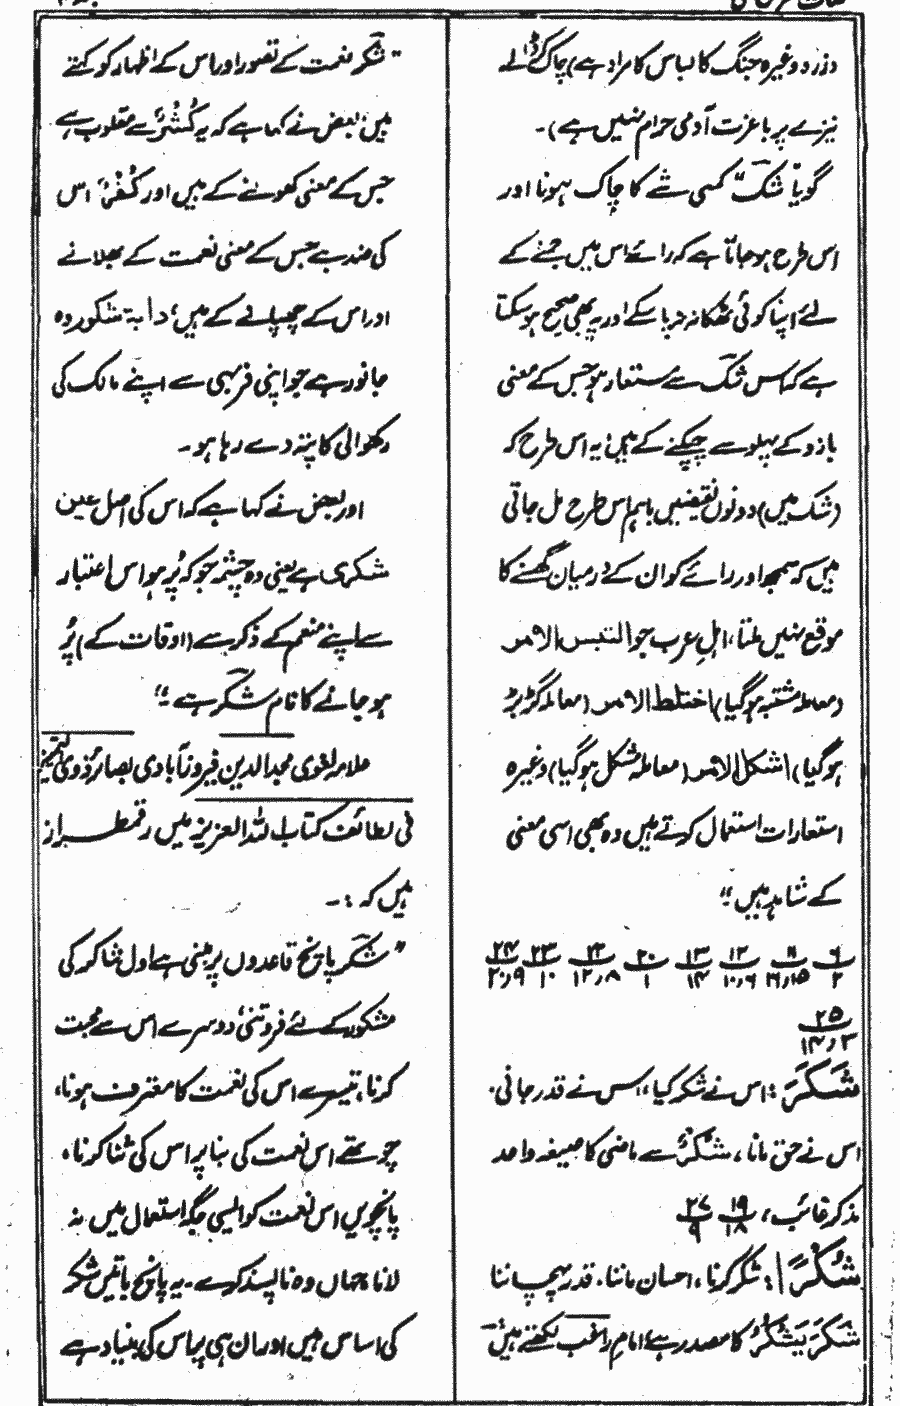 وزرد وغیرہ جنگ کا لباس کا مراد ہے) چاک ڈالے
نیزے پر باعزت آدمی حرام نہیں ہے)۔
گویا "شک" کسی شے کا چاک ہونا اور
اس طرح ہو جانا ہے کہ رائے اس میں جمنے کے
لئے اپنا کوئی ٹھکانہ نہ پا سکے اور یہ بھی صحیح ہو سکتا
ہے کہ اس شک سے مستعار ہو جس کے معنی
بازو کے پہلو سے چپکنے کے ہیں؛ یہ اس طرح کہ
(شک میں) دونوں نقیضیں باہم اس طرح مل جاتی
ہیں کہ سمجھ اور رائے کو ان کے درمیان گھسنے کا
موقع نہیں ملتا، اہلِ عرب جو التبس الامر
(معاملہ مشتبہ ہو گیا) اختلط الامر (معاملہ گڑبڑ
ہو گیا) اشکل الامر (معاملہ مشکل ہو گیا) وغیرہ
استعارات استعمال کرتے ہیں وہ بھی اسی معنی
کے شاہد ہیں"
۶/۲ ۱۱/۱۵،۱۶ ۱۲/۱۰،۶ ۱۳/۱۴ ۲۰/۱ ۲۲/۱۲،۸ ۲۳/۱۰ ۲۴/۲۰،۹
۲۵/۱۴،۳
شَکَرَ: اس نے شکر کیا، اس نے قدر جانی۔
اس نے حق مانا، شُکْرٌ سے ماضی کا صیغہ واحد
مذکر غائب، ۱۹/۱۸ ۲۷/۹
شُکْرًا: شکر کرنا، احسان ماننا، قدر پہچاننا
شَکَرَ یَشْکُرُ کا مصدر ہے؛ امام راغب لکھتے ہیں:۔
"شکر نعمت کے تصور اور اس کے اظہار کو کہتے
ہیں، بعض نے کہا ہے کہ یہ کُشْرٌ سے مقلوب ہے
جس کے معنی کھولنے کے ہیں اور کُفْرٌ، اس
کی ضد ہے جس کے معنی نعمت کے بھلانے
اور اس کے چھپانے کے ہیں؛ دابۃ شکور وہ
جانور ہے جو اپنی فربہی سے اپنے مالک کی
رکھوالی کا پتہ دے رہا ہو۔
اور بعض نے کہا ہے کہ اس کی اصل عین
شکری ہے یعنی وہ چشمہ جو کہ پُر ہو اس اعتبار
سے اپنے منعم کے ذکر سے (اوقات کے) پُر
ہو جانے کا نام شکر ہے"
علامہ لغوی مجد الدین فیروز آبادی بصائر ذوی التمییز
فی لطائف کتاب اللہ العزیز میں رقمطراز
ہیں کہ:۔
"شکر پانچ قاعدوں پر مبنی ہے اول شاکر کی
مشکور کے لئے فروتنی، دوسرے اس سے محبت
کرنا، تیسرے اس کی نعمت کا معترف ہونا،
چوتھے اس نعمت کی بنا پر اس کی ثنا کرنا،
پانچویں اس نعمت کو ایسی جگہ استعمال میں نہ
لانا جہاں وہ ناپسند کرے۔ یہ پانچ باتیں شکر
کی اساس ہیں اور ان ہی پر اس کی بنیاد ہے